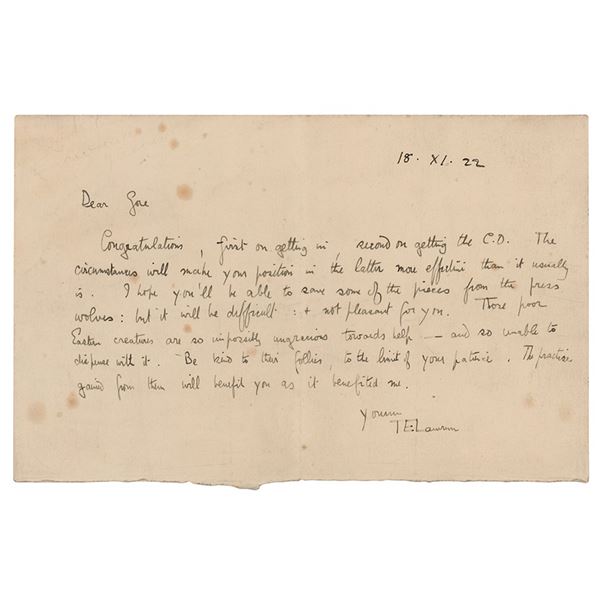 18. XI. 22
Dear Gore
Congratulations, first on getting in, second on getting the C.O. The
circumstances will make your position in the latter more effective than it usually
is. I hope you'll be able to save some of the pieces from the press
wolves: but it will be difficult: + not pleasant for you. Those poor
Eastern creatures are so imposibly ungracious towards help — and so unable to
dispense with it. Be kind to their follies, to the limit of your patience. The practice
gained from them will benefit you as it benefited me.
Yours
T E Lawrence